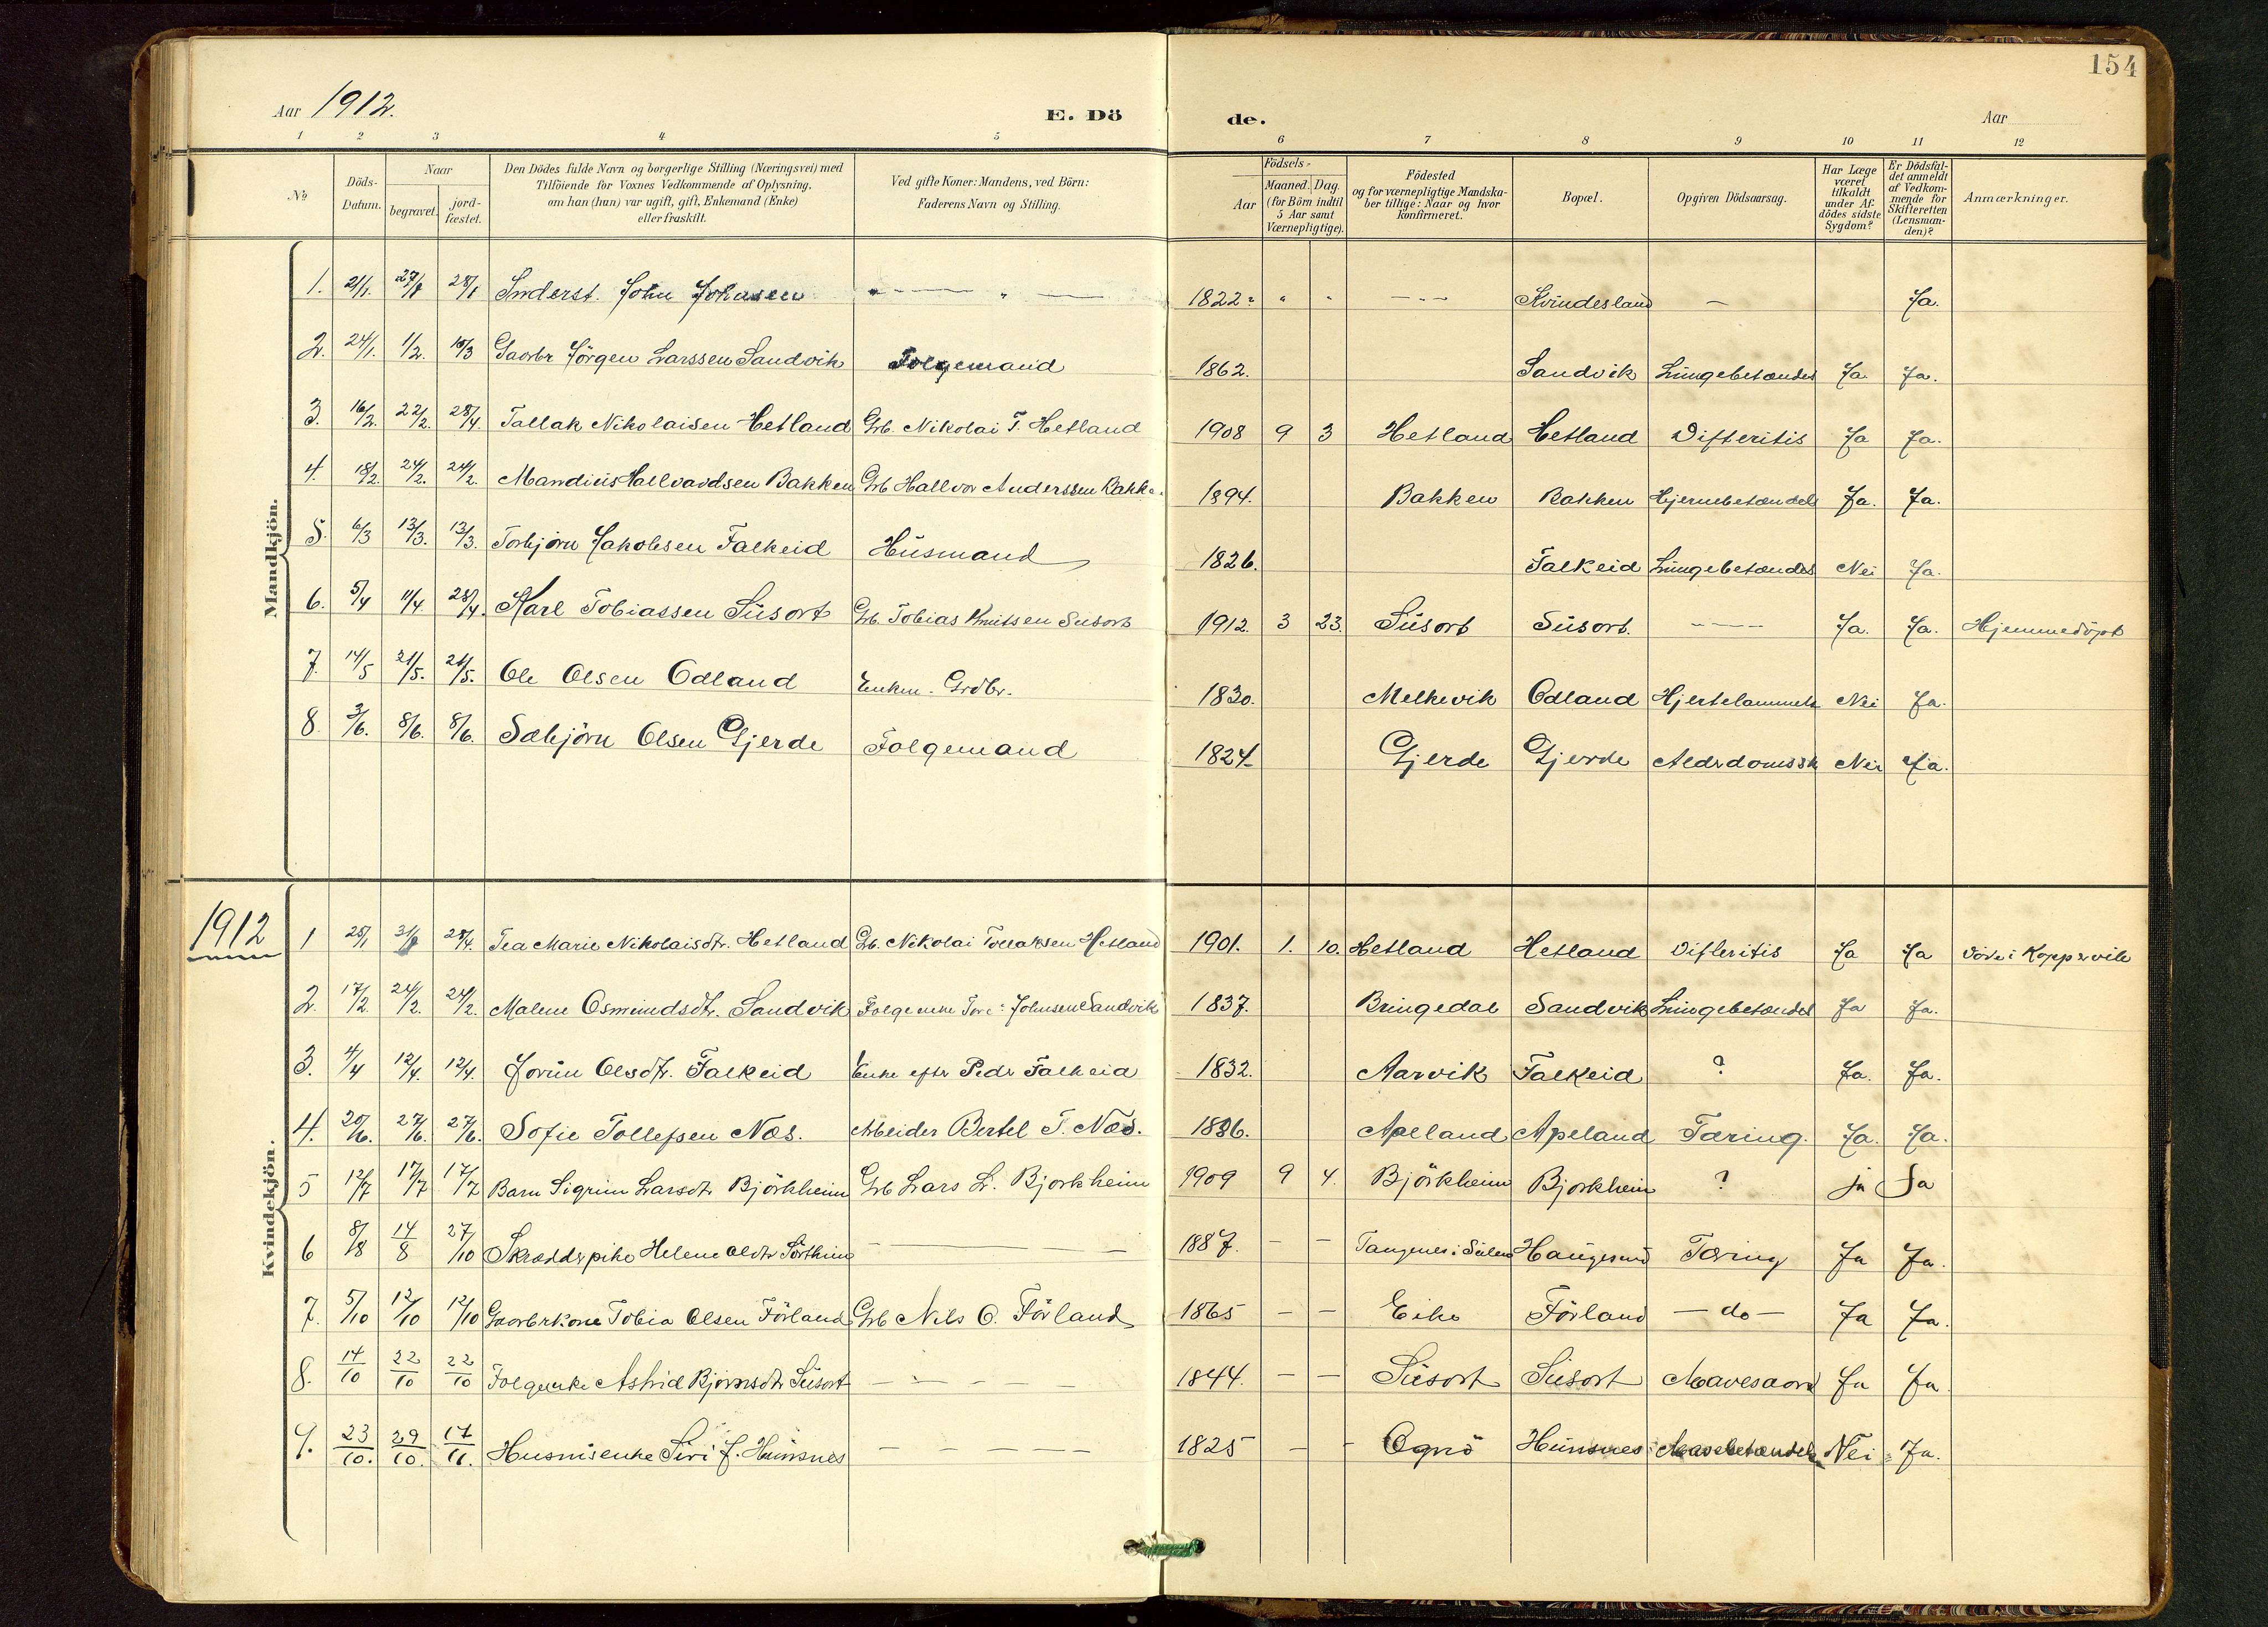 154
Aar 1912. E. Dö de. Aar
1 2 3 4 5 6 7 8 9 10 11 12
No. Döds-Datum. Naar begravet. jord-fæstet. Den Dödes fulde Navn og borgerlige Stilling (Næringsvei) med Tilföiende for Voxnes Vedkommende af Oplysning, om han (hun) var ugift, gift, Enkemand (Enke) eller fraskilt. Ved gifte Koner: Mandens, ved Börn: Faderens Navn og Stilling. Födsels- Aar Maaned. Dag. (for Börn indtil 5 Aar samt Værnepligtige). Födested og for værnepligtige Mandskaber tillige: Naar og hvor konfirmeret. Bopæl. Opgiven Dödsaarsag. Har Læge været tilkaldt under Afdödes sidste Sygdom? Er Dödsfaldet anmeldt af Vedkommende for Skifteretten (Lensmanden)? Anmærkninger.
Mandkjön.
1. 21/1. 27/1 28/1 Inderst. John Johasen — " — 1822 " " — Kvindesland — Ja.
2. 24/1. 1/2. 10/3 Gaarbr Jörgen Larssen Sandvik Folgemand 1862. Sandvik Lungebetændel Ja Ja.
3. 16/2. 22/2. 28/4. Tallak Nikolaisen Hetland Grb. Nikolai T. Hetland 1908 9 3 Hetland Hetland Difteritis Ja Ja.
4. 18/2. 24/2. 24/2. Mandius Hallvardsen Bakken Grb Hallvor Anderssen Bakke. 1894. Bakken Bakken Hjernebetændels Ja. Ja.
5. 6/3 13/3. 13/3. Torbjörn Jakobsen Falkeid Husmand 1826. Falkeid Lungebetændels Nei Ja.
6. 5/4 11/4. 28/4. Karl Tobiassen Susort Grb. Tobias Knutsen Susort 1912. 3 23. Susort Susort. — Ja. Ja. Hjemmedöpt
7. 14/5 21/5. 21/5. Ole Olsen Odland Enkem. Grdbr. 1830. Melkevik Odland Hjertelammels Nei Ja.
8. 3/6. 8/6. 8/6. Sæbjörn Olsen Gjerde Folgemand 1824 Gjerde Gjerde Alderdomssk Nei Ja.
1912
Kvindekjön.
1 25/1 31/1 28/4. Tea Marie Nikolaisdtr. Hetland Grb. Nikolai Tollaksen Hetland 1901. 1. 10. Hetland Hetland Difteritis Ja Ja Döde i Koppervik
2. 17/2. 24/2. 24/2. Malene Osmundsdtr. Sandvik Folgemm Tore Johnsen Sandvik 1837. Bringedal Sandvik Lungebetændel Ja Ja.
3. 4/4 12/4. 12/4. Jorun Olsdtr. Falkeid Enke efter Peder Falkeid 1832. Aarvik Falkeid ? Ja. Ja.
4. 20/6. 27/6. 27/6. Sofie Tollefsen Næs. Arbeider Bertel T. Næs. 1886. Apeland Apeland Tæring. Ja. Ja.
5 12/7 17/7 17/7 Barn Sigrun Larsdtr Björkheim Grb Lars L. Bjorkheim 1909 9 4. Björkheim Bjorkheim ? ja Ja
6 8/8 14/8 27/10 Skrædderpike Helene Oldtr — 1887. — — Haugesund Tæring Ja Ja.
7. 5/10 12/10 12/10 Gaarbrkone Tobia Olsen Förland Grb Nils O. Förland 1865 — — Eike Förland — do — Ja Ja.
8. 14/10 22/10 22/10 Folgeenke Astrid Bjørnsdtr Susort — 1844. — — Susort Susort Mavesaar Ja Ja
9. 23/10. 29/10. 17/11. Husmsenke Siri J. Hunsnes — 1825 — - Ognö Hunsnes Mavebetændels Nei Ja.